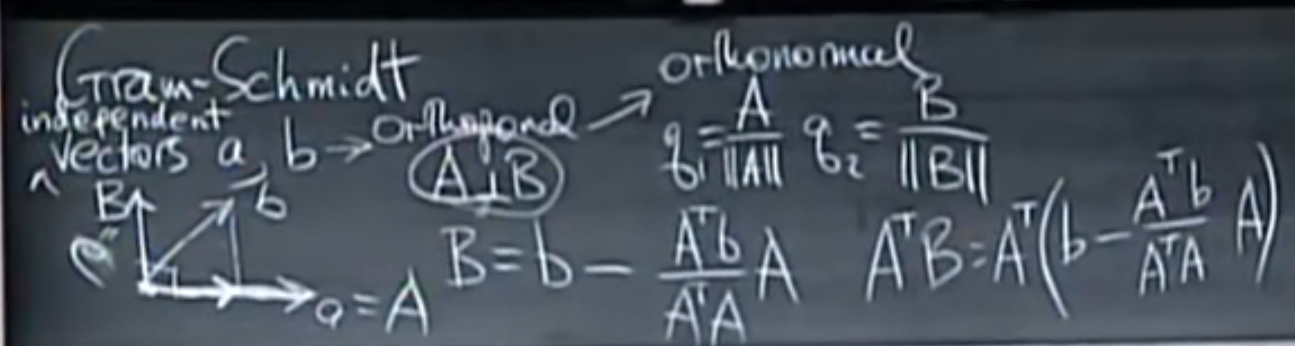 Gram-Schmidt
independent
vectors a, b → orthogonal → orthonormal
A⊥B
q₁ = A/||A|| q₂ = B/||B||
B
b
a = A
B = b − (Aᵀb/AᵀA) A
AᵀB = Aᵀ(b − (Aᵀb/AᵀA) A)